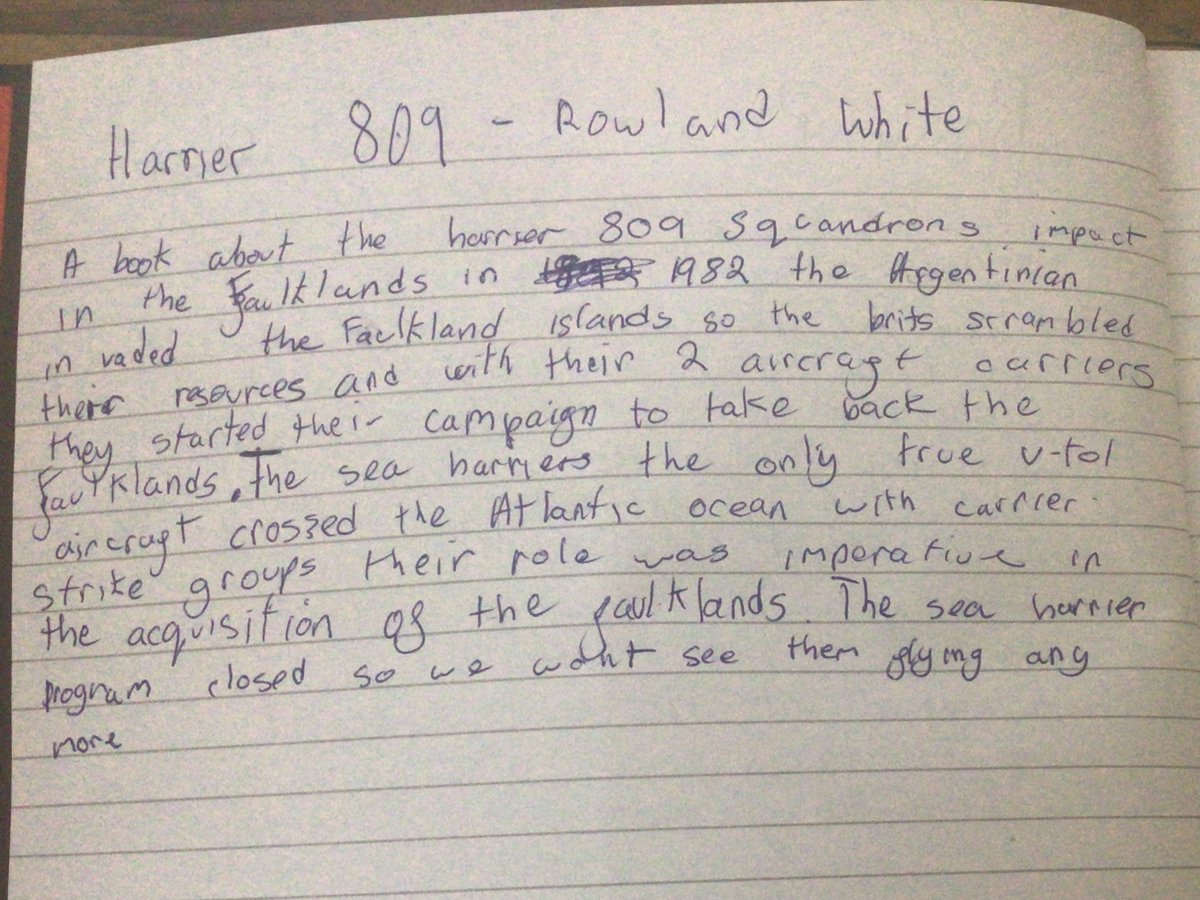 Harrier 809 - Rowland White
A book about the harrier 809 Sqcandrons impact
in the Faulklands in 1982 the Argentinian
invaded the Faclkland islands so the brits scrambled
their resources and with their 2 aircraft carriers
they started their campaign to take back the
Faulklands. The sea harriers the only true v-tol
aircraft crossed the Atlantic ocean with carrier
strike groups their role was imperative in
the acquisition of the faulklands. The sea harrier
program closed so we wont see them flying any
more